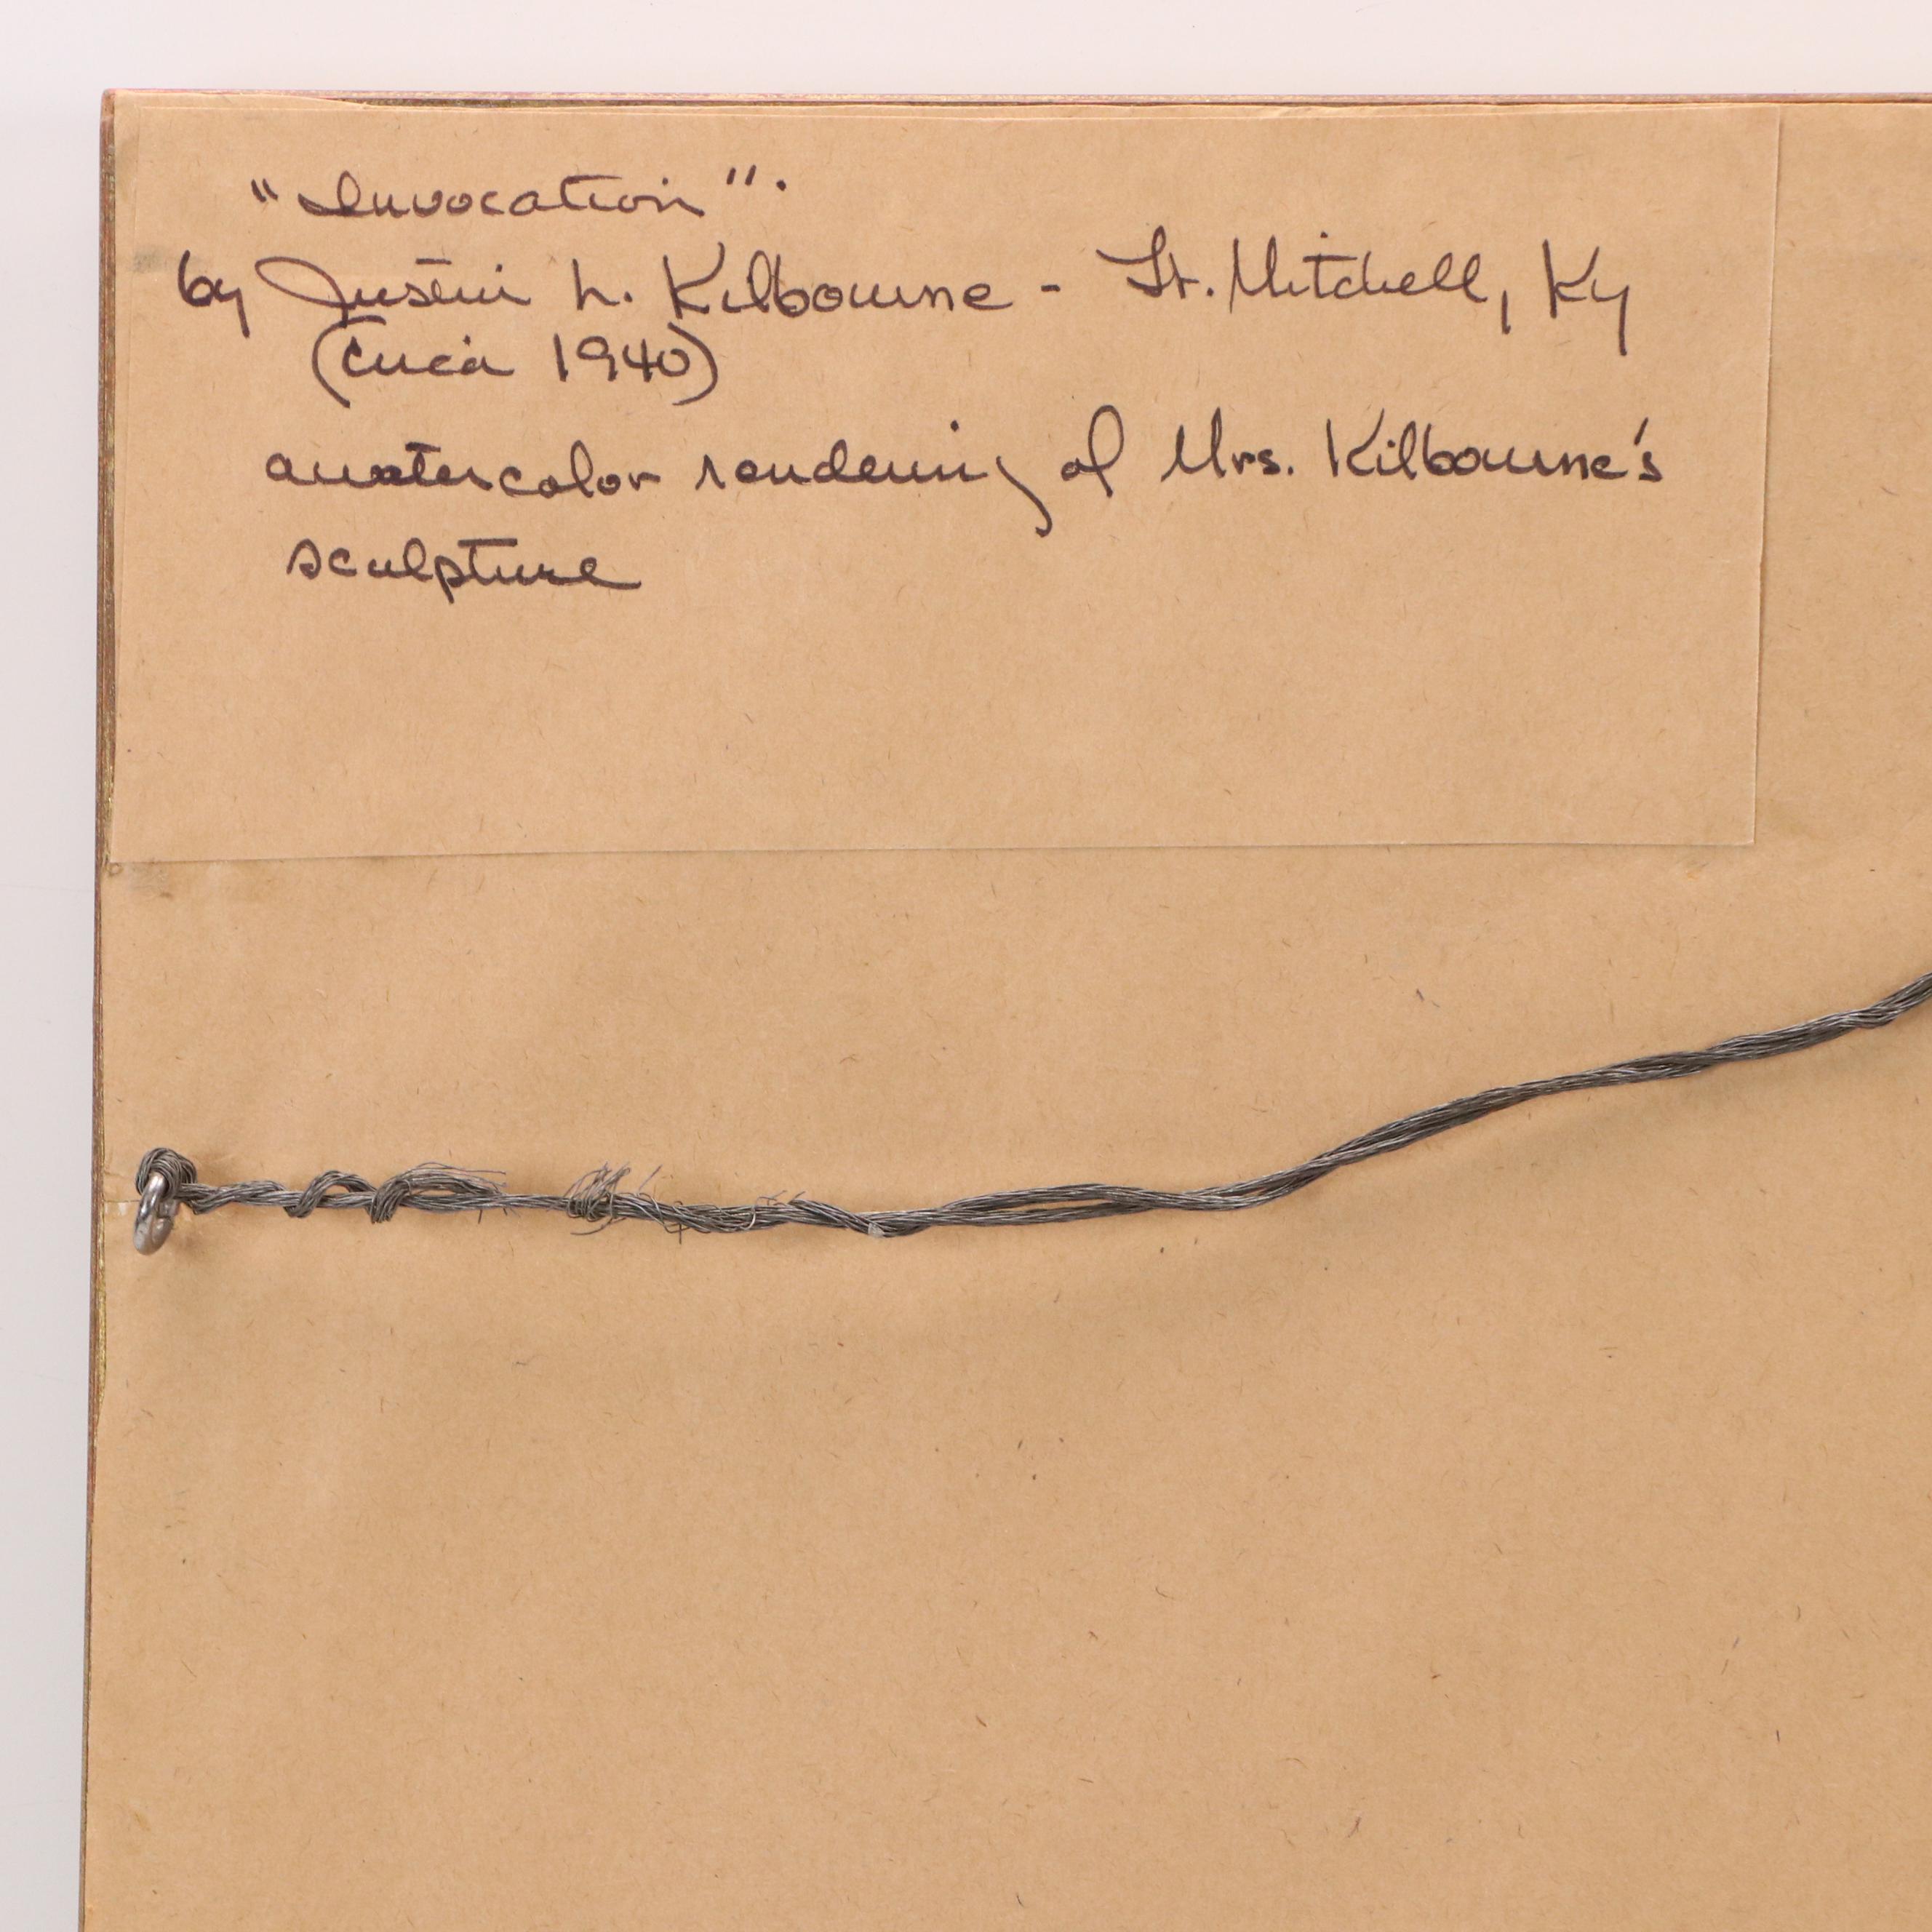 "Invocation".
by Justin L. Kilbourne - Ft. Mitchell, Ky
(Circa 1940)
a watercolor rendering of Mrs. Kilbourne's
sculpture